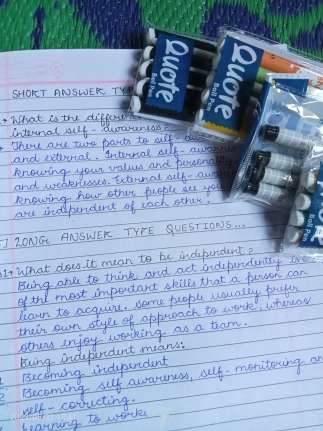 SHORT ANSWER TYP
What is the differe
internal self - awareness
There are two parts to self
and external. Internal self - aware
knowing your values and personal
and weaknesses. External self-awar
knowing how other people see you
are independent of each other.
LONG ANSWER TYPE QUESTIONS...
What does it mean to be independent?
Being able to think and act independently is
of the most important skills that a person can
learn to acquire. some people usually prefer
their own style of approach to work, whereas
others enjoy working as a team.
Being independent means:
Becoming independent
Becoming self awareness, self-monitoring an
self-correcting.
Learning to work
Quote
Ball Pen
Quote
Ball Pen
Quote
Ball Pen